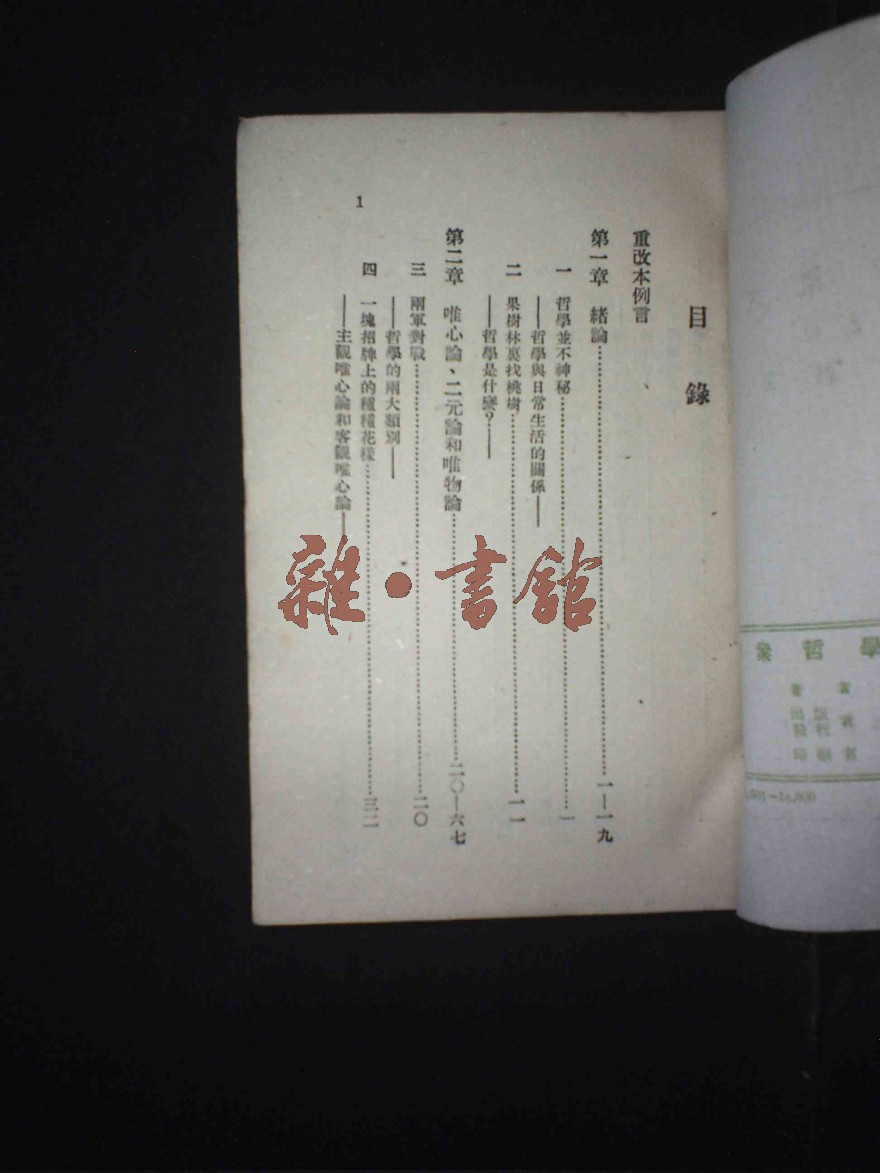 目錄
重改本例言
第一章 緒論……一—一九
一 哲學並不神秘……一
——哲學與日常生活的關係——
二 果樹林裏找桃樹……一一
——哲學是什麼？——
第二章 唯心論、二元論和唯物論……二〇—六七
三 兩軍對戰……二〇
——哲學的兩大類別——
四 一塊招牌上的種種花樣……三二
——主觀唯心論和客觀唯心論——
1
雜·書館
眾哲學
著者
出版
發行者
印刷者
001—16,000